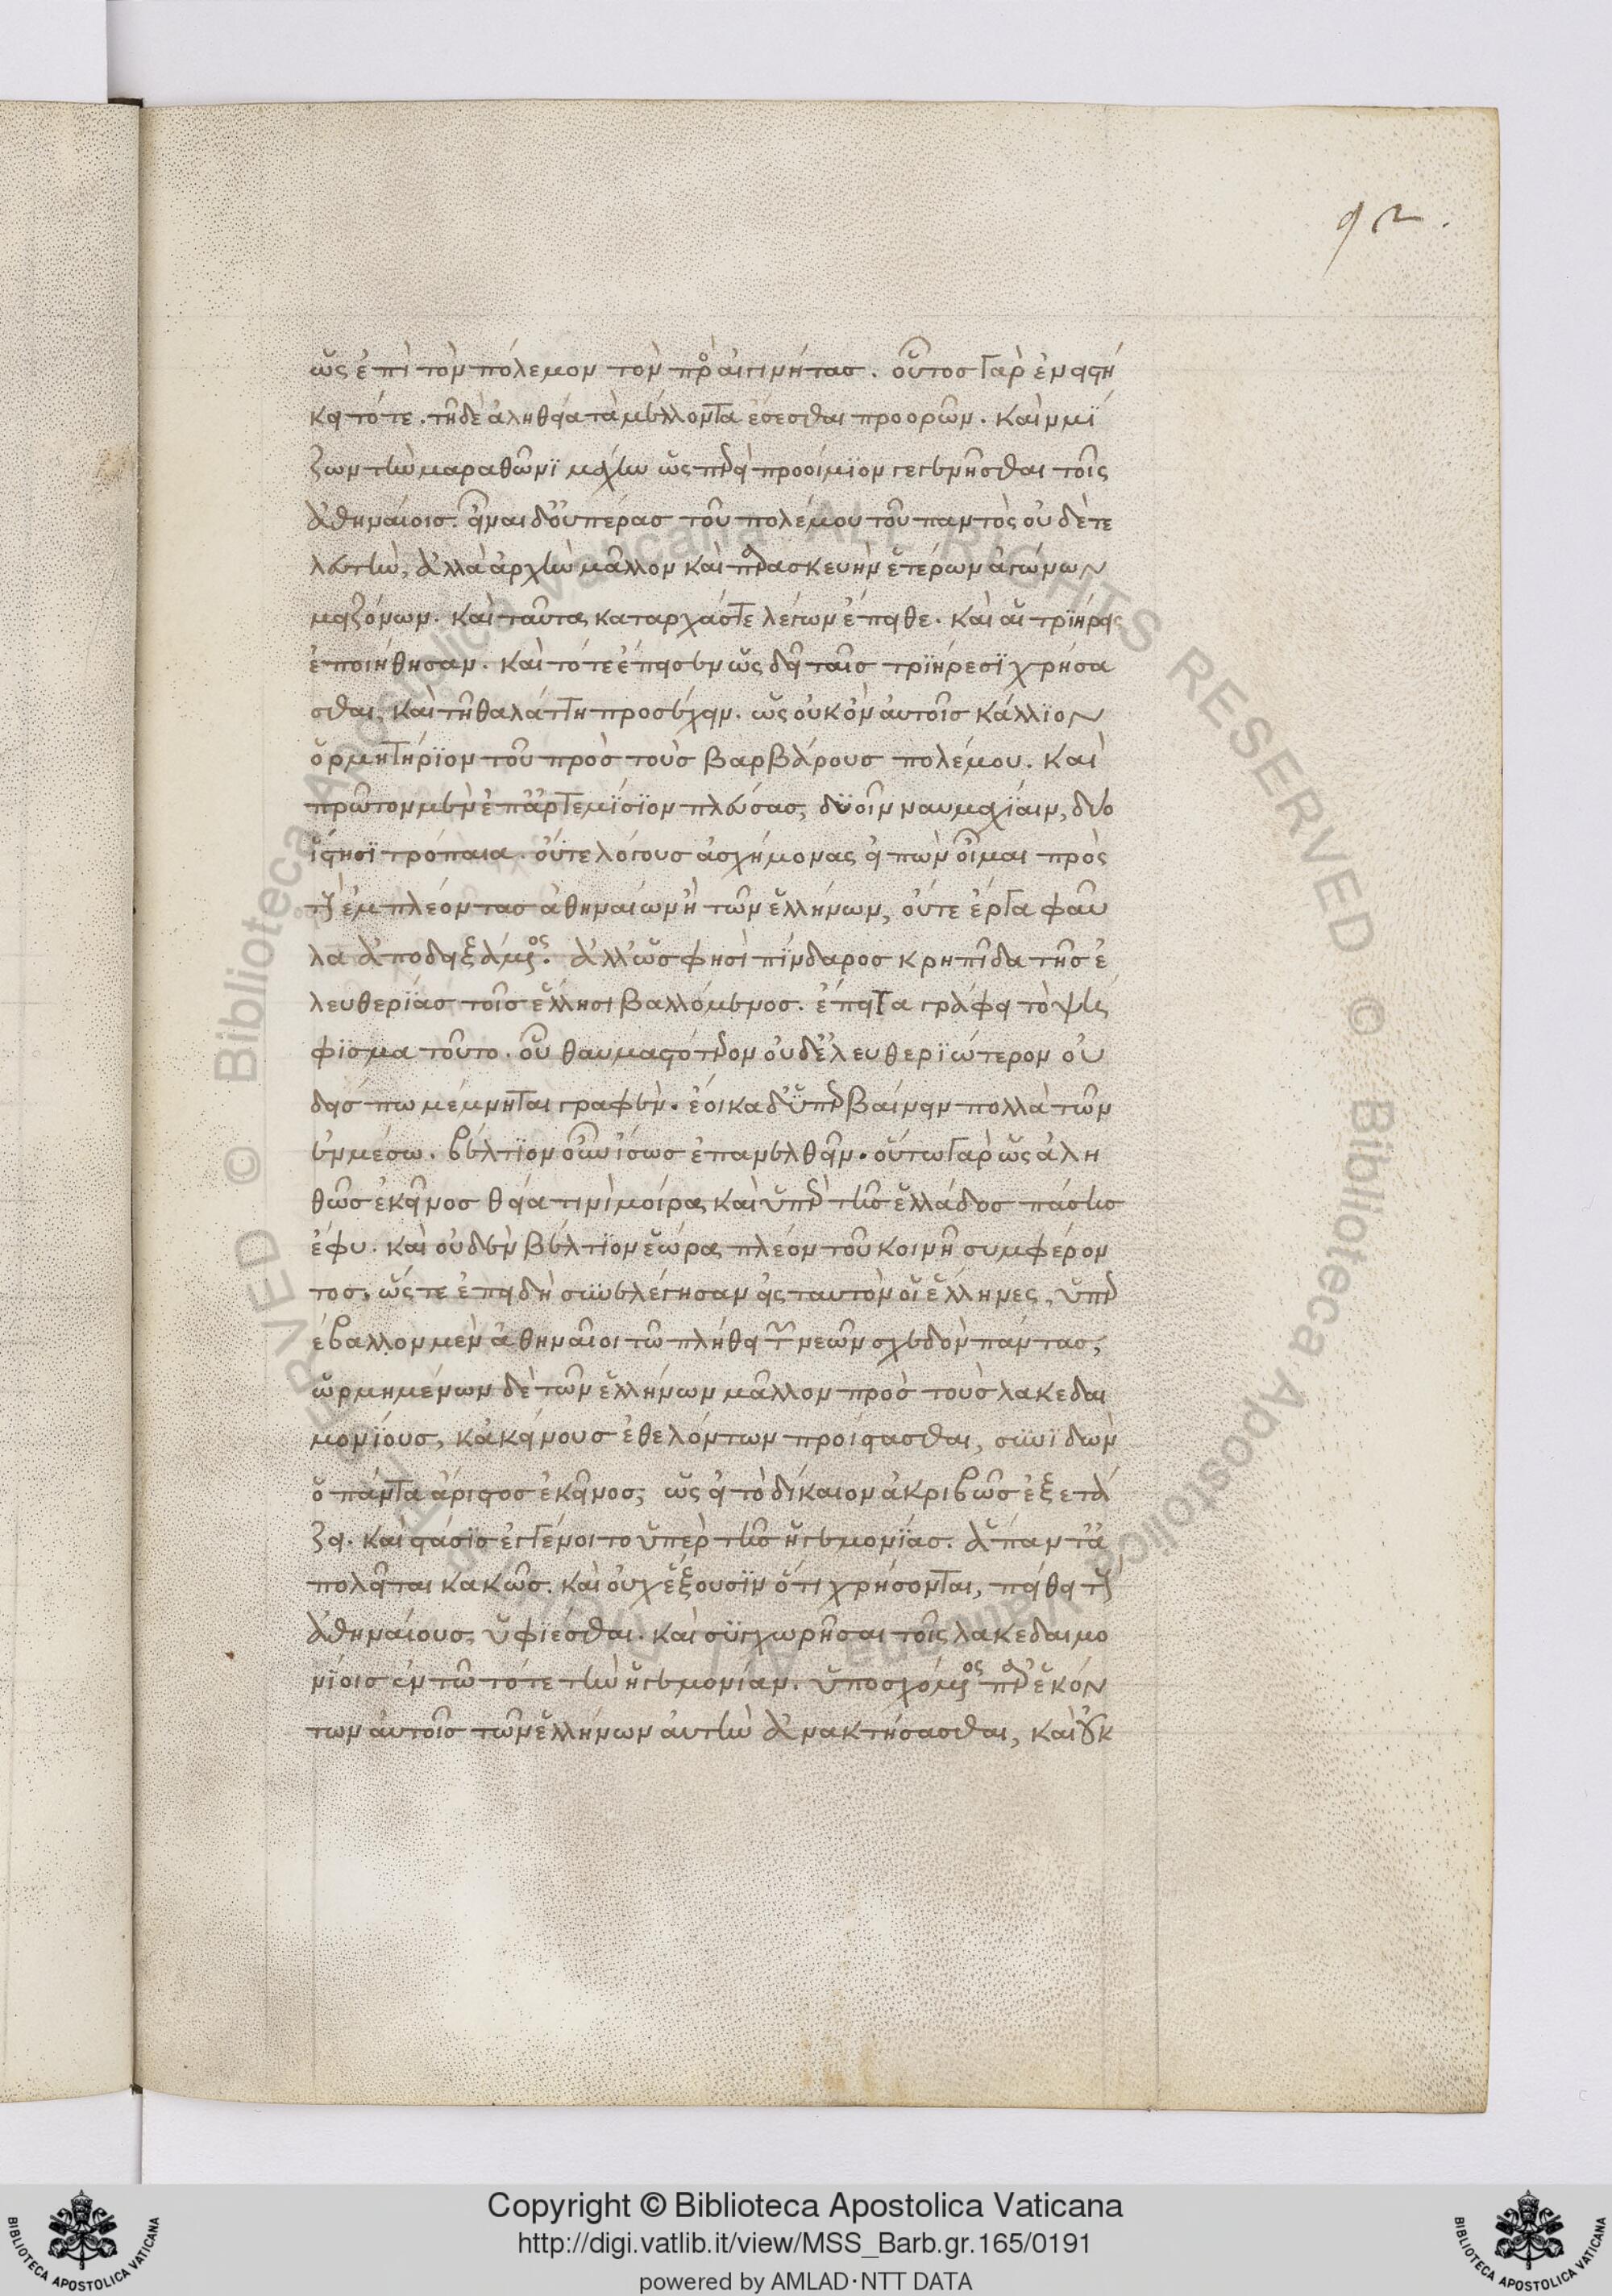 92.
ὡς ἐπὶ τὸν πόλεμον τὸν πρὸς αἰγινήτας. οὗτος γὰρ ἐνειστή
κει τότε. τῇ δὲ ἀληθείᾳ τὰ μέλλοντα ἔσεσθαι προορῶν. καὶ νομί
ζων τὴν μαραθῶνι μάχην ὥσπερεὶ προοίμιον γεγενῆσθαι τοῖς
ἀθηναίοις. εἶναι δ' οὐ πέρας τοῦ πολέμου τοῦ παντὸς οὐδὲ τε
λευτὴν, ἀλλὰ ἀρχὴν μᾶλλον καὶ παρασκευὴν ἑτέρων ἀγώνων
μειζόνων. καὶ ταῦτα καταρχάς τε λέγων ἔπειθε. καὶ αἱ τριήρεις
ἐποιήθησαν. καὶ τότε ἔπεισεν ὡς δεῖ ταῖς τριήρεσι χρήσα
σθαι, καὶ τῇ θαλάττῃ προσέχειν. ὡς οὐκ ὂν αὐτοῖς κάλλιον
ὁρμητήριον τοῦ πρὸς τοὺς βαρβάρους πολέμου. καὶ
πρῶτον μὲν ἐπ' ἀρτεμίσιον πλεύσας, δυοῖν ναυμαχίαιν, δύο
ἵστησι τρόπαια. οὔτε λόγους ἀσχήμονας εἰπὼν οἶμαι πρὸς
τοὺς ἐμπλέοντας ἀθηναίων ἢ τῶν ἑλλήνων, οὔτε ἔργα φαῦ
λα ἀποδειξάμενος. ἀλλ' ὥς φησι πίνδαρος κρηπῖδα τῆς ἐ
λευθερίας τοῖς ἕλλησι βαλλόμενος. ἔπειτα γράφει τὸ ψή
φισμα τοῦτο. οὗ θαυμαστότερον οὐδ' ἐλευθεριώτερον οὐ
δείς πω μέμνηται γραφέν. ἔοικα δ' ὑπερβαίνειν πολλὰ τῶν
ἐν μέσῳ. βέλτιον οὖν ἴσως ἐπανελθεῖν. οὕτω γὰρ ὡς ἀλη
θῶς ἐκεῖνος θείᾳ τινὶ μοίρᾳ καὶ ὑπὲρ τῆς ἑλλάδος πάσης
ἔφυ. καὶ οὐδὲν βέλτιον ἑώρα πλέον τοῦ κοινῇ συμφέρον
τος. ὥστε ἐπειδὴ συνελέγησαν εἰς ταυτὸν οἱ ἕλληνες, ὑπερ
έβαλλον μὲν ἀθηναῖοι τῷ πλήθει τῶν νεῶν σχεδὸν πάντας,
ὡρμημένων δὲ τῶν ἑλλήνων μᾶλλον πρὸς τοὺς λακεδαι
μονίους, κἀκείνους ἐθελόντων προίστασθαι, συνιδὼν
ὁ πάντα ἄριστος ἐκεῖνος, ὡς εἰ τὸ δίκαιον ἀκριβῶς ἐξετά
ζει. καὶ στάσις ἐγγένοιτο ὑπὲρ τῆς ἡγεμονίας. ἅπαντα ἀ
πολεῖται κακῶς. καὶ οὐχ ἕξουσιν ὅτι χρήσονται, πείθει τοὺς
ἀθηναίους ὑφίεσθαι. καὶ συγχωρῆσαι τοῖς λακεδαιμο
νίοις ἐν τῷ τότε τὴν ἡγεμονίαν. ὑποσχόμενος παρ' ἑκόν
των αὐτοῖς τῶν ἑλλήνων αὐτὴν ἀνακτήσασθαι, καὶ οὐκ
Copyright © Biblioteca Apostolica Vaticana
http://digi.vatlib.it/view/MSS_Barb.gr.165/0191
powered by AMLAD·NTT DATA
BIBLIOTECA APOSTOLICA VATICANA
BIBLIOTECA APOSTOLICA VATICANA